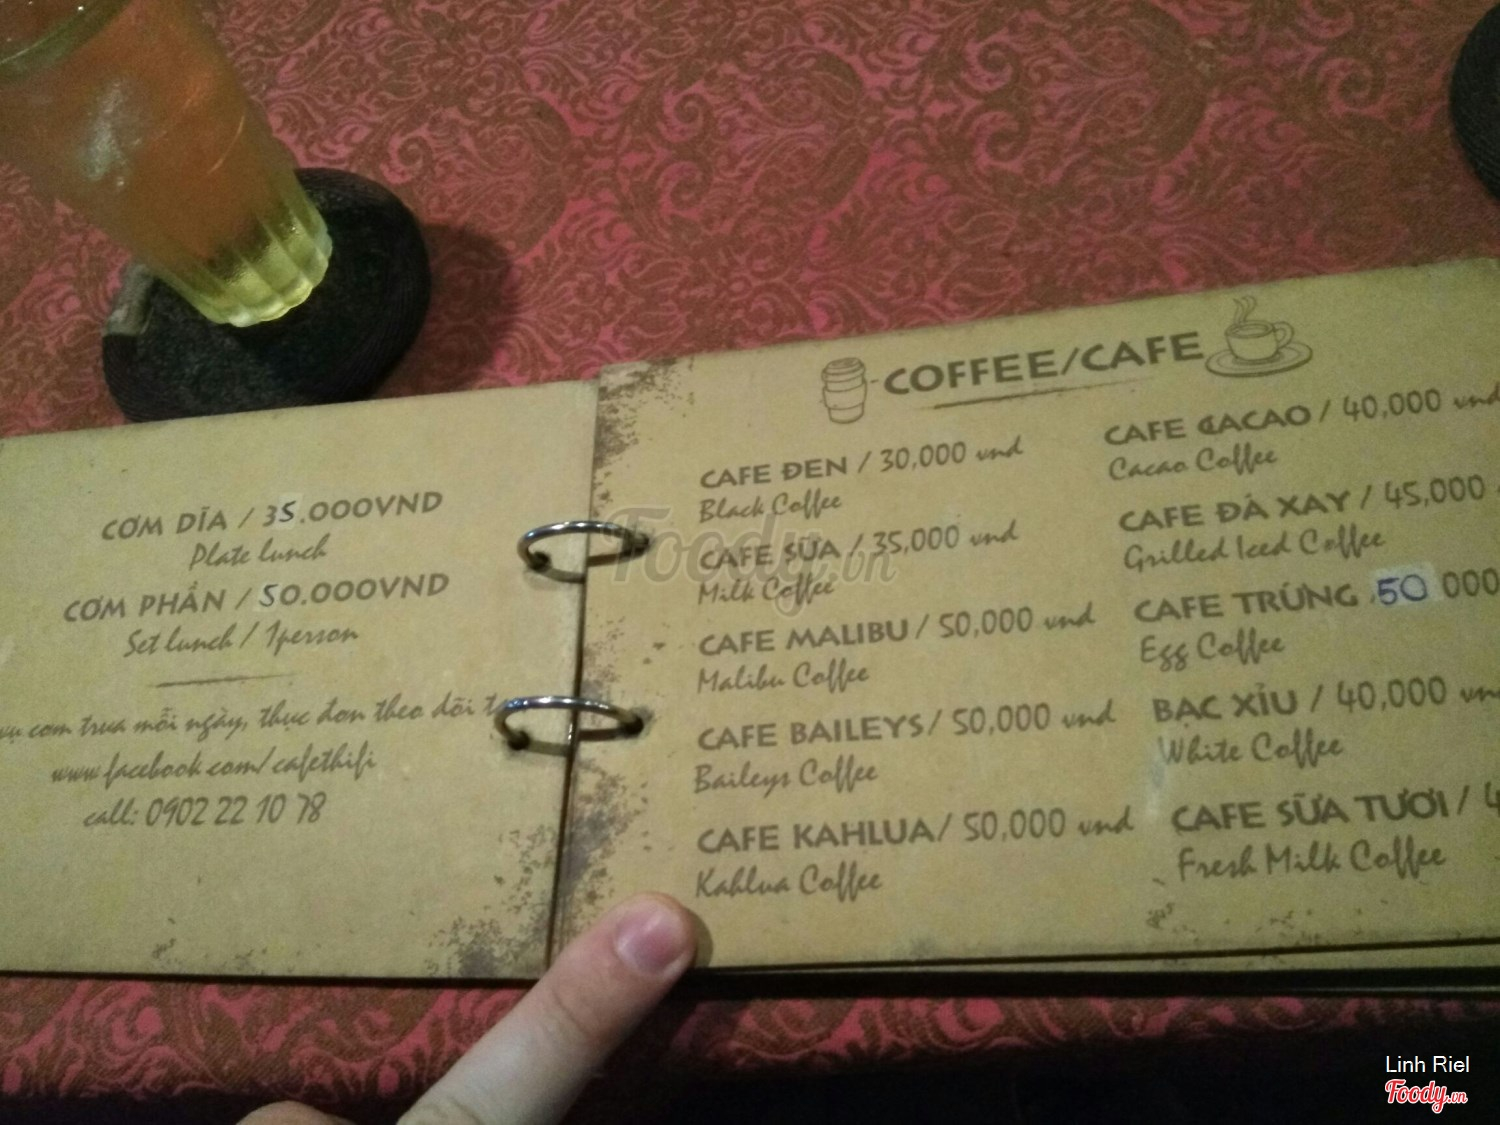 CƠM DĨA / 35.000VND
Plate lunch
CƠM PHẦN / 50.000VND
Set lunch / 1person
vụ cơm trưa mỗi ngày, thực đơn theo dõi
www.facebook.com/cafethifi
call: 0902 22 10 78
COFFEE/CAFE
CAFE ĐEN / 30,000 vnd
Black Coffee
CAFE SỮA / 35,000 vnd
Milk Coffee
CAFE MALIBU / 50,000 vnd
Malibu Coffee
CAFE BAILEYS / 50,000 vnd
Baileys Coffee
CAFE KAHLUA / 50,000 vnd
Kahlua Coffee
CAFE CACAO / 40,000 vnd
Cacao Coffee
CAFE ĐÁ XAY / 45,000
Grilled Iced Coffee
CAFE TRỨNG 50 000
Egg Coffee
BẠC XỈU / 40,000 vnd
White Coffee
CAFE SỮA TƯƠI / 4
Fresh Milk Coffee
Foody.vn
Linh Riel
Foody.vn